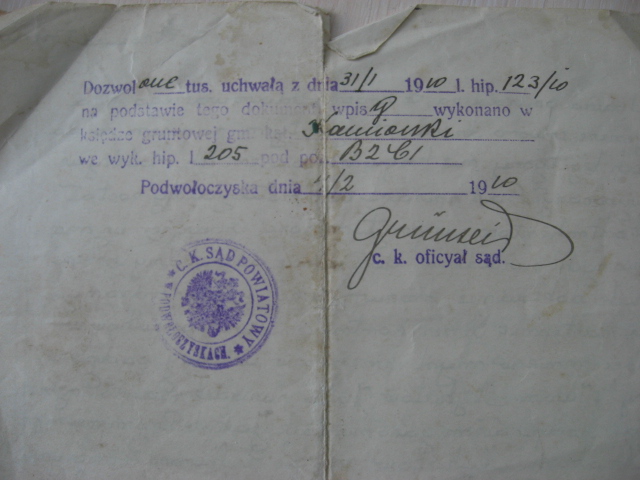 Dozwolone tus. uchwałą z dnia 31/1 1910 l. hip. 123/10
na podstawie tego dokumentu wpis wykonano w
księdze gruntowej gm. kat. Kamionki
we wyk. hip. l 205 pod po. B2 C1
Podwołoczyska dnia /2 1910
c. k. oficyał sąd.
C. K. SĄD POWIATOWY
PODWOŁOCZYSKACH.